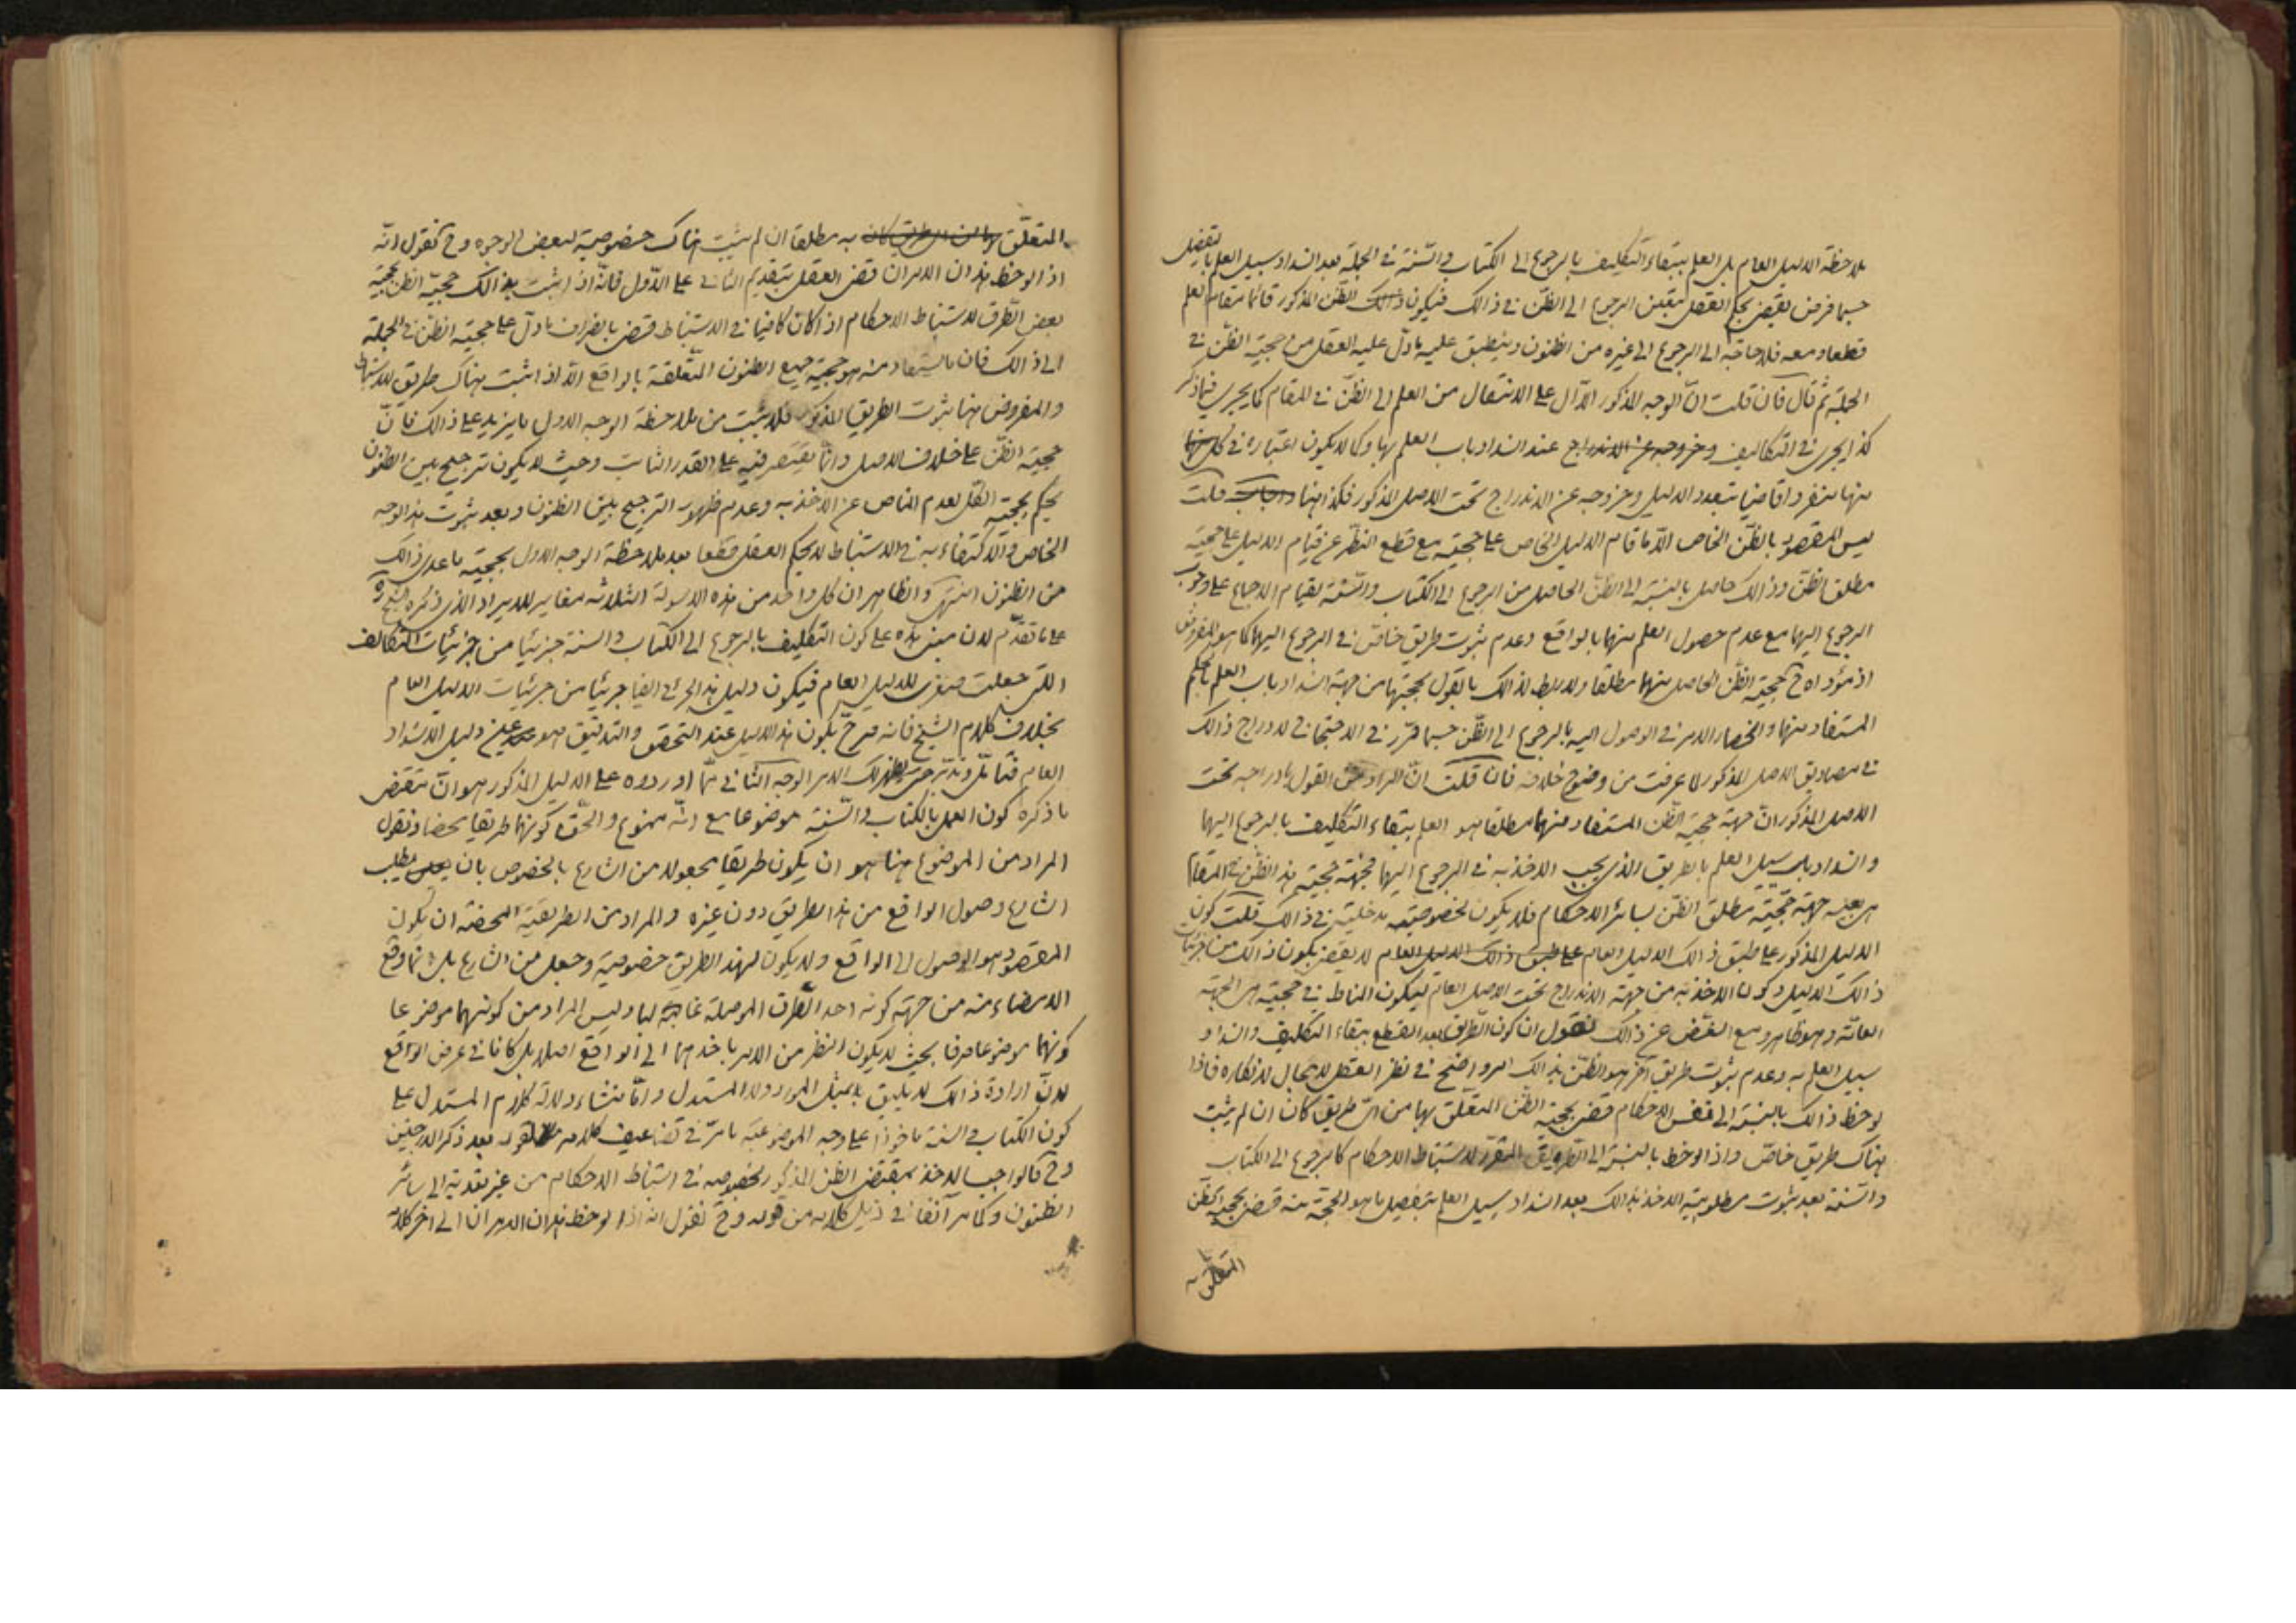 بملاحظة الدليل العام بل العلم ببقاء التكليف بالرجوع الى الكتاب والسّنة فى الجملة بعد انسداد سبيل العلم بالتفصيل
حسبما فرض يقضى بحكم العقل بتعين الرجوع الى الظنّ فى ذالك فيكون ذالك الظّن المذكور قائما مقام العلم
قطعا ومعه فلا حاجة الى الرجوع الى غيره من الظنون وينطبق عليه ما دلّ عليه العقل من حجية الظّن فى
الجملة ثم قال فان قلت انّ الوجه المذكور الدّال على الانتقال من العلم الى الظنّ فى المقام كما يجرى فيما ذكر
كذا يجرى فى التكاليف وخروجه عن الاندراج عند انسداد باب العلم بها وكما لا يكون اعتباره فى كل منها
منها منفردا قاضيا بتعدد الدليل وخروجه عن الاندراج تحت الاصل المذكور فكذا هنا قلت
ليس المقصود بالظنّ الخاص الّا ما قام الدليل الخاص على حجيته مع قطع النظر عن قيام الدليل على حجية
مطلق الظنّ وذالك حاصل بالنسبة الى الظنّ الحاصل من الرجوع الى الكتاب والسّنة لقيام الاجماع على وجوب
الرجوع اليهما مع عدم حصول العلم منهما بالواقع وعدم ثبوت طريق خاصّ فى الرجوع اليهما كما هو المفروض
اذ مؤداه ح حجية الظنّ الحاصل منهما مطلقا ولا ربط لذالك بالقول بحجيتها من جهة انسداد باب العلم بالحكم
المستفاد منها وانحصار الامر فى الوصول اليه بالرجوع الى الظّن حسبما قرّر فى الاحتجاج لادراج ذالك
فى مصاديق الاصل المذكور لما عرفت من وضوح خلافه فان قلت انّ المراد من القول بادراجه تحت
الاصل المذكور انّ جهة حجية الظّن المستفاد منهما مطلقا هو العلم ببقاء التكليف بالرجوع اليهما
وانسداد باب سبيل العلم بالطريق الذى يجب الاخذ به فى الرجوع اليهما فجهة حجية هذا الظنّ فى المقام
هى بعينه جهة حجية مطلق الظنّ بسائر الاحكام فلا يكون لخصوصيته مدخلية فى ذالك قلت كون
الدليل المذكور على طبق ذالك الدليل العام على طبق ذالك الدليل العام لا يقضى بكون ذالك من جزئيات
ذالك الدليل وكون الاخذ به من جهة الاندراج تحت الاصل العام ليكون المناط فى حجيته هى الجهة
العامّة وهو ظاهر ومع الغضّ عن ذالك نقول ان كون الطريق بعد القطع ببقاء التكليف وانسداد
سبيل العلم به وعدم ثبوت طريق آخر هو الظنّ بذالك امر واضح فى نظر العقل لا مجال لانكاره فاذا
لوحظ ذالك بالنسبة الى نفس الاحكام قضى بحجية الظن المتعلق بها من اىّ طريق كان ان لم يثبت
هناك طريق خاصّ واذا لوحظ بالنسبة الى الطريق المقرّر لاستنباط الاحكام كالرجوع الى الكتاب
والسّنة بعد ثبوت مطلوبية الاخذ بذالك بعد انسداد سبيل العلم بتفصيل ما هو الحجة منه قضى بحجية الظّن
المتعلق به
المتعلّق بها من اى طريق كان به مطلقا ان لم يثبت هناك خصوصية لبعض الوجوه وح نقول انّه
اذا لوحظ هذان الامران قضى العقل بتقديم الثانى على الاوّل فانّه اذا اثبت بذالك حجيّة الظن بحجية
بعض الطّرق لاستنباط الاحكام اذا كان كافيا فى الاستنباط قضى بانصراف ما دلّ على حجية الظنّ فى الجملة
الى ذالك فان ما يستفاد منه هو حجية جميع الظنون المتّعلقة بالواقع الّا اذا ثبت هناك طريق للاستنباط
والمفروض هنا ثبوت الطريق المذكور فلا يثبت من ملاحظة الوجه الاول ما يزيد على ذالك فانّ
حجية الظّن على خلاف الاصل وانّما يقتصر فيه على القدر الثابت وحيث لا يكون ترجيح بين الظنون
يحكم بحجية الكل لعدم المناص عن الاخذ به وعدم ظهور الترجيح بين الظنون وبعد ثبوت هذا الوجه
الخاص والاكتفاء به فى الاستنباط لا يحكم العقل قطعا بعد ملاحظة الوجه الاول بحجية ما عدى ذالك
من الظنون انتهى والظاهر ان كل واحد من هذه الاسولة الثلاثه مغاير للايراد الذى ذكره الشيخ ره
على ما تقدّم لان مبنى هذه على كون التكليف بالرجوع الى الكتاب والسنة جزئيا من جزئيات التكاليف
اللتى جعلت صغرى للدليل العام فيكون دليل هذا الجزئى ايضا جزئيا من جزئيات الدليل العام
بخلاف كلام الشيخ فانه صرح بكون هذا الدليل عند التحقق والتدقيق هو عين دليل الانسداد
العام فتأمّل وتدبّر حتى يظهر لك الامر الوجه الثانى ممّا اوردوه على الدليل المذكور هو انّ مقتضى
ما ذكره كون العمل بالكتاب والسّنة موضوعا مع انّه ممنوع والحق كونهما طريقا محضا ونقول
المراد من الموضوع هنا هو ان يكون طريقا مجعولا من الشارع بالخصوص بان يطلب
الشارع وصول الواقع من هذا الطريق دون غيره والمراد من الطريقية المحضة ان يكون
المقصود هو الوصول الى الواقع ولا يكون لهذا الطريق خصوصية وجعل من الشارع بل انما وقع
الامضاء منه من جهة كونه احد الطّرق الموصلة غالبا وليس المراد من كونهما موضوعا
كونهما موضوعا صرفا بحيث لا يكون النظر من الامر باخذهما الى الواقع اصلا بل كانا فى عرض الواقع
لانّ ارادة ذالك لا يليق بمثل المورد والمستدل وانما منشاء دلالة كلام المستدل على
كون الكتاب والسنة ماخوذا على وجه الموضوعية ما مرّ فى تضاعيف كلامه بعد ذكر الدرجتين
وح فالواجب الاخذ بمقتضى الظن المذكور بخصوصه فى استنباط الاحكام من غير تعدية الى سائر
الظنون وكما مر آنفا فى ذيل كلامه من قوله وح نقول انه اذا لوحظ هذان الامران الى آخر كلامه